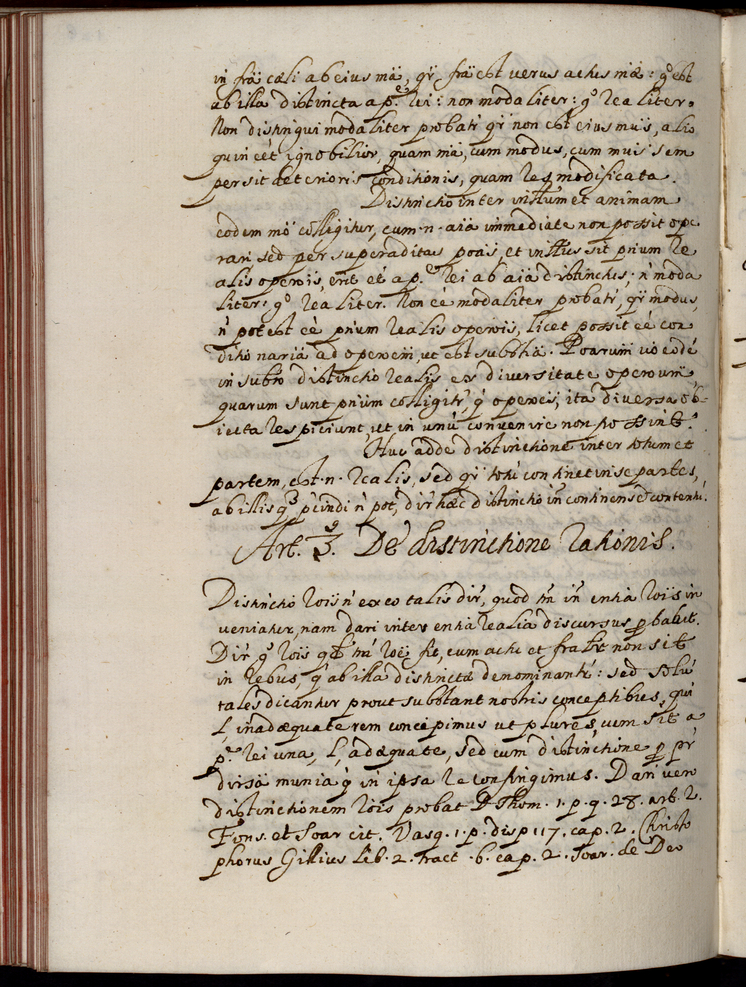 in frã cæli ab eius mã, qr̃ frã est verus actus mæ: gº est
ab illa distincta a p.ᵉ rei: non modaliter: gº realiter.
Non distingui modaliter probatr̃ qr̃ non est eius mus, alio
quin eét ignobilior, quam mã, cum modus, cum mui sem
per sit deterioris conditionis, quam res modificata.
Distinctio inter intllum et animam
eodem mº colligitur, cum .n. aiã immediate non possit ope
rari sed per superadditas poãs, et intllus sit prium re
alis operõis, erit et a p.ᵉ rei ab aiã distinctus, ñ moda
liter: gº realiter. Non eé modaliter probatr̃, qr̃ modus,
ñ potest eé prium realis operõis, licet possit eé con
ditionaria ad operõem, ut est subbtia. Poarum uo eodé
in subto distinctio realis ex diversitate operoum
quarum sunt prium colligitr̃, q̃ operõis, ita diversa ob-
iecta respiciunt, ut in unũ convenire non possint.
Huc adde distinctione inter totum et
partem, est .n. realis, sed qr̃ totũ continet in se partes,
ab illis q̃ pcindi ñ pot, dir̃ hæc distinctio in continens et contentũ.
Art. 3.º De distinctione rationis.
Distinctio rõis ñ ex eo talis dir̃, quod tm̃ in entia rõis in
veniatur, nam dari inter entia realia discursus pbabit.
Dir̃ gº rõis qt̃ m̃ rõe fit, cum actu et fralit non sit
in rebus, q̃ ab illa distincta denominantr̃: sed solũ
tales dicantur prout substant nostris conceptibus, qui
l, inadæquate rem concipimus ut plures, cum sit a
p.ᵉ rei una, l, adæquate, sed cum distinctione p pr̃
diversa munia q̃ in ipsa re confingimus. Dari vero
distinctionem rõis probat D Thom. 1. p. q. 28. art. 2.
Fons. et Soar cit. Vasq. 1. p. disp 117. cap. 2. Christo
phorus Gillius Lib. 2. tract. 6. cap. 2. Soar. de Deo